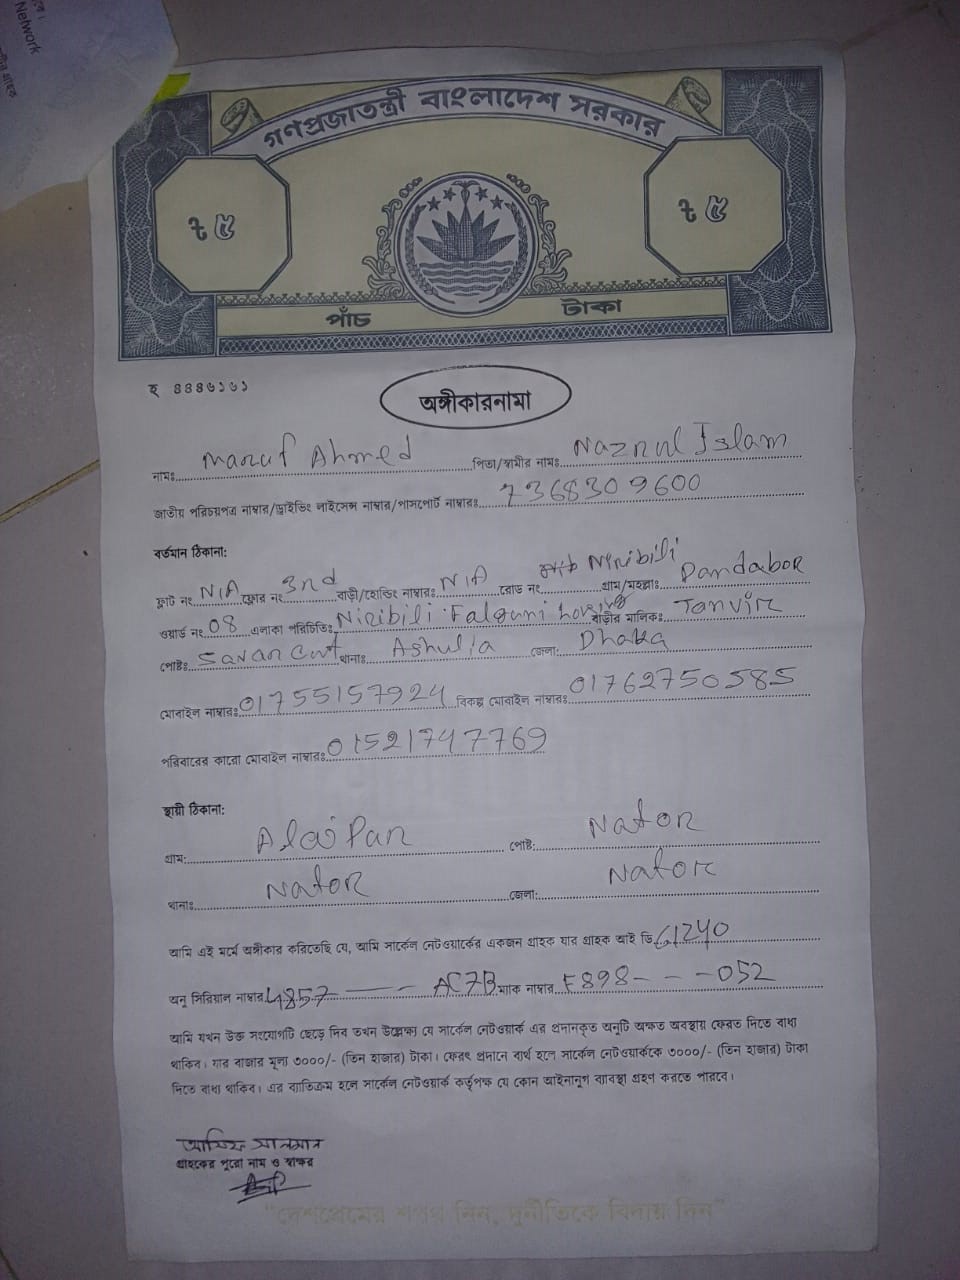 Network
গণপ্রজাতন্ত্রী বাংলাদেশ সরকার
৳ ৫ ৳ ৫
পাঁচ টাকা
হ ৪৪৪৬১৬১
অঙ্গীকারনামা
নামঃ Maruf Ahmed পিতা/স্বামীর নামঃ Nazrul Islam
জাতীয় পরিচয়পত্র নাম্বার/ড্রাইভিং লাইসেন্স নাম্বার/পাসপোর্ট নাম্বারঃ 7368309600
বর্তমান ঠিকানা:
ফ্লাট নং N/A ফ্লোর নং 3rd বাড়ী/হোল্ডিং নাম্বারঃ N/A রোড নং Niribili গ্রাম/মহল্লাঃ Dandabor
ওয়ার্ড নং 08 এলাকা পরিচিতিঃ Niribili Falguni housing বাড়ীর মালিকঃ Tanvir
পোষ্টঃ Savar Cant থানাঃ Ashulia জেলা: Dhaka
মোবাইল নাম্বারঃ 01755157924 বিকল্প মোবাইল নাম্বারঃ 01762750585
পরিবারের কারো মোবাইল নাম্বারঃ 01521747769
স্থায়ী ঠিকানা:
গ্রাম: Alaipar পোষ্ট: Nator
থানাঃ Nator জেলা: Nator
আমি এই মর্মে অঙ্গীকার করিতেছি যে, আমি সার্কেল নেটওয়ার্কের একজন গ্রাহক যার গ্রাহক আই ডি 61240
অনু সিরিয়াল নাম্বার 4857 --- AC7B ম্যাক নাম্বার F898 - - - 052
আমি যখন উক্ত সংযোগটি ছেড়ে দিব তখন উল্লেক্ষ্য যে সার্কেল নেটওয়ার্ক এর প্রদানকৃত অনুটি অক্ষত অবস্থায় ফেরত দিতে বাধ্য
থাকিব। যার বাজার মূল্য ৩০০০/- (তিন হাজার) টাকা। ফেরৎ প্রদানে ব্যর্থ হলে সার্কেল নেটওয়ার্ককে ৩০০০/- (তিন হাজার) টাকা
দিতে বাধ্য থাকিব। এর ব্যতিক্রম হলে সার্কেল নেটওয়ার্ক কর্তৃপক্ষ যে কোন আইনানুগ ব্যবস্থা গ্রহণ করতে পারবে।
গ্রাহকের পুরো নাম ও স্বাক্ষর
"দেশপ্রেমের শপথ নিন, দুর্নীতিকে বিদায় দিন"